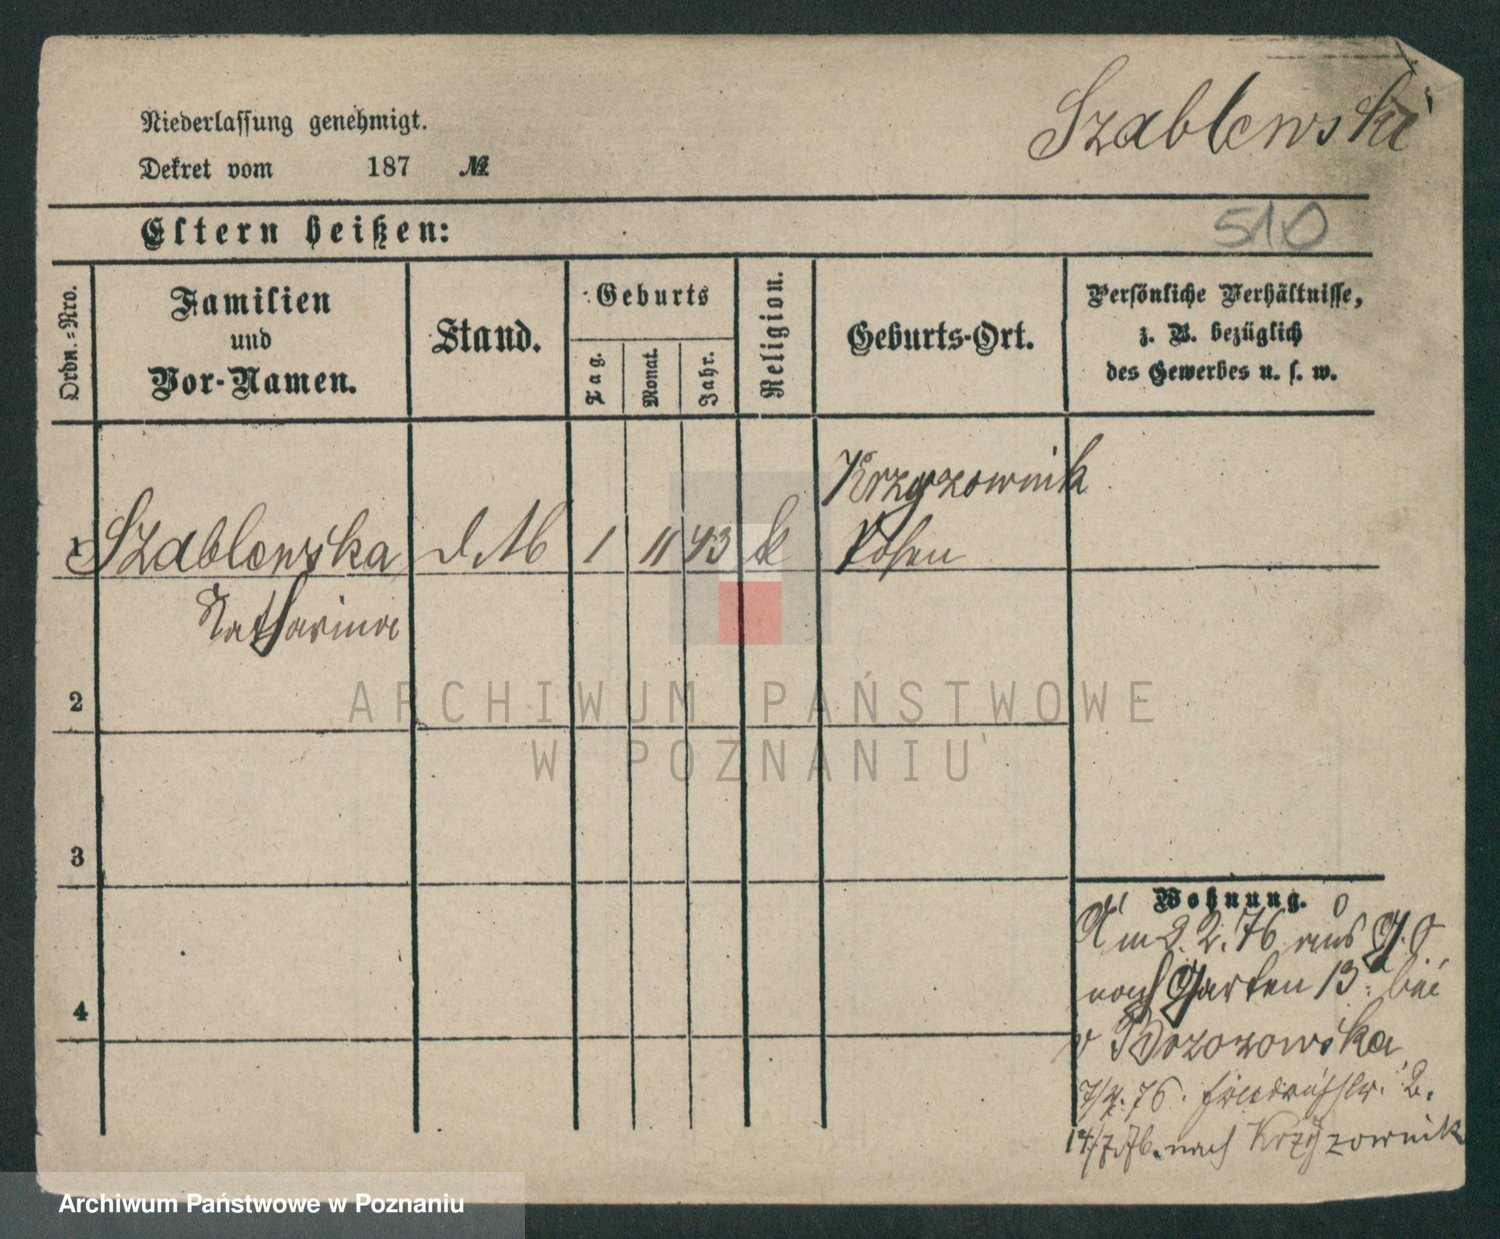 Szablewski
Niederlassung genehmigt.
Dekret vom 187 №
Eltern heißen:
510
Ordn.=Nro.
Familien
und
Vor-Namen.
Stand.
Geburts
Tag.
Monat.
Jahr.
Religion.
Geburts-Ort.
Persönliche Verhältnisse,
z. B. bezüglich
des Gewerbes u. s. w.
Krzyzownik
1 Szablewska d. M 1 11 43 k Posen
Katharina
2
3
4
Wohnung.
Am 2. 2. 76 aus G. S
nach Garten 13 bei
v
7/4. 76. Friedrichstr. 2.
14/7. 76. nach Krzyzownik
ARCHIWUM PAŃSTWOWE
W POZNANIU
Archiwum Państwowe w Poznaniu